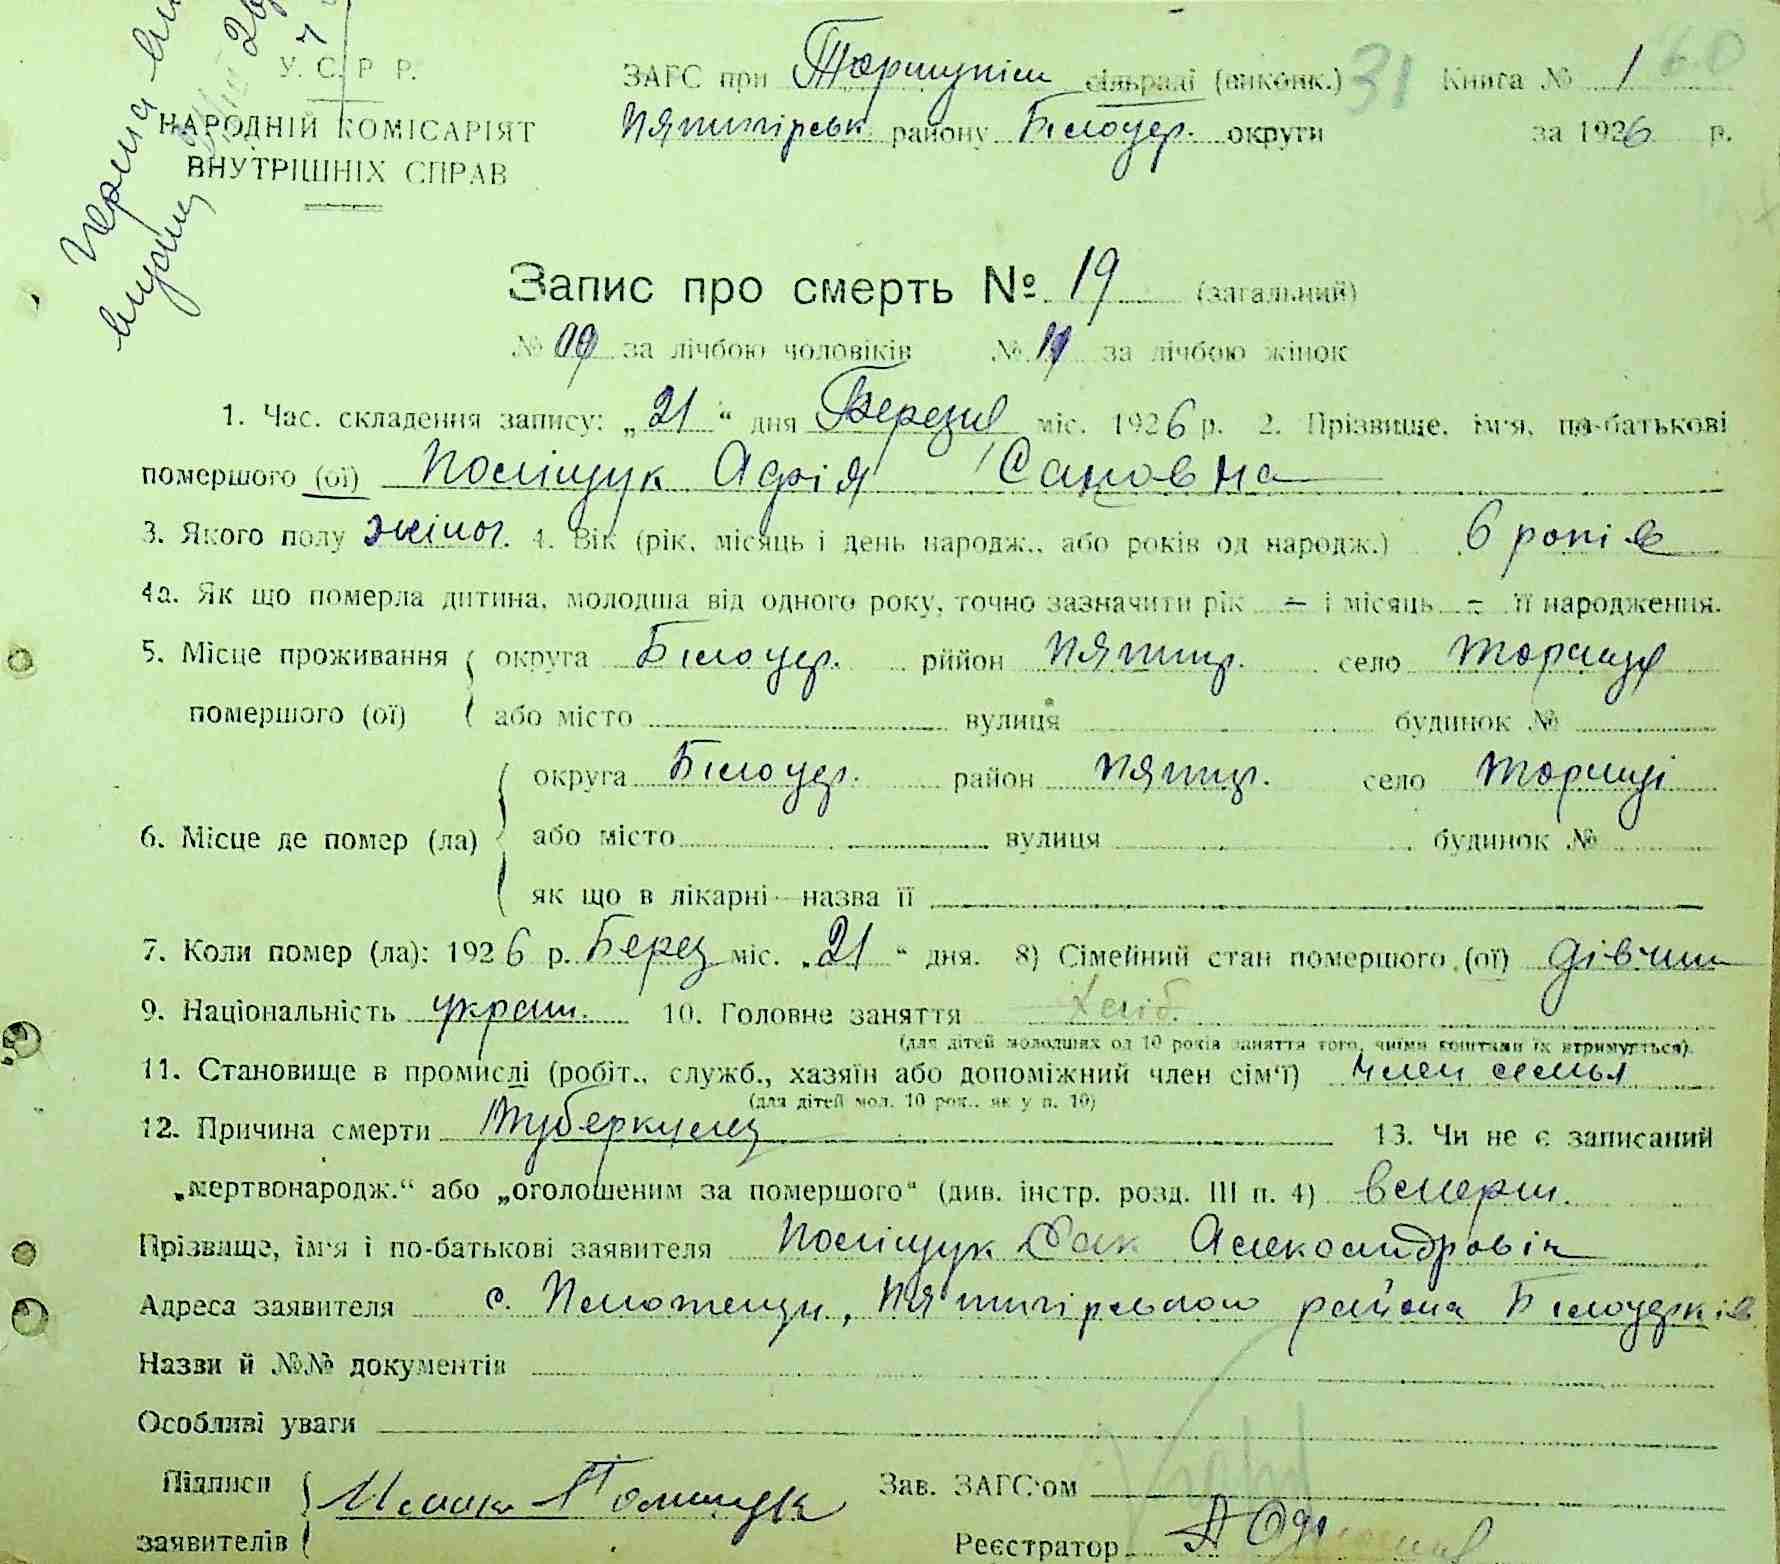 У. С. Р Р.
НАРОДНІЙ КОМІСАРІЯТ
ВНУТРІШНІХ СПРАВ
ЗАГС при сільраді (виконк.) 31 Книга № 1 60
Пятигірськ. району Білоцер. округи за 1926 р.
Запис про смерть № 19 (загальний)
№ за лічбою чоловіків № за лічбою жінок
1. Час. складення запису: „21“ дня Березня міс. 1926 р. 2. Прізвище, ім'я, по-батькові
помершого (ої) Поліщук
3. Якого полу жіноч. 4. Вік (рік, місяць і день народж., або років од народж.) 6 років
4а. Як що померла дитина, молодша від одного року, точно зазначити рік – і місяць – її народження.
5. Місце проживання округа Білоцер. рийон Пятиг. село Ториця
помершого (ої) або місто вулиця будинок №
округа Білоцер. район Пятиг. село Ториці
6. Місце де помер (ла) або місто вулиця будинок №
як що в лікарні—назва її
7. Коли помер (ла): 1926 р. Берез міс. „21“ дня. 8) Сімейний стан помершого (ої) дівчин
9. Національність украін. 10. Головне заняття Хліб.
(для дітей молодших од 10 років заняття того, чиїми коштами їх втримується).
11. Становище в промислі (робіт., служб., хазяїн або допоміжний член сім'ї) член семья
(для дітей мол. 10 рок., як у п. 10)
12. Причина смерти Туберкулез 13. Чи не є записаний
„мертвонародж.“ або „оголошеним за помершого“ (див. інстр. розд. III п. 4)
Прізвище, ім'я і по-батькові заявителя Поліщук Александровіч
Адреса заявителя с. Пятигірського района
Назви й №№ документів
Особливі уваги
Підписи Зав. ЗАГС'ом
заявителів Реєстратор